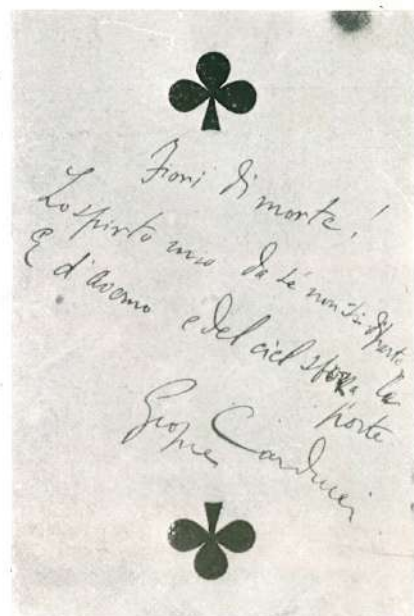 Fiori di morte!
Lo spirto mio da sé non si diparte
E d'averno e del ciel sforza le porte
Giosue Carducci